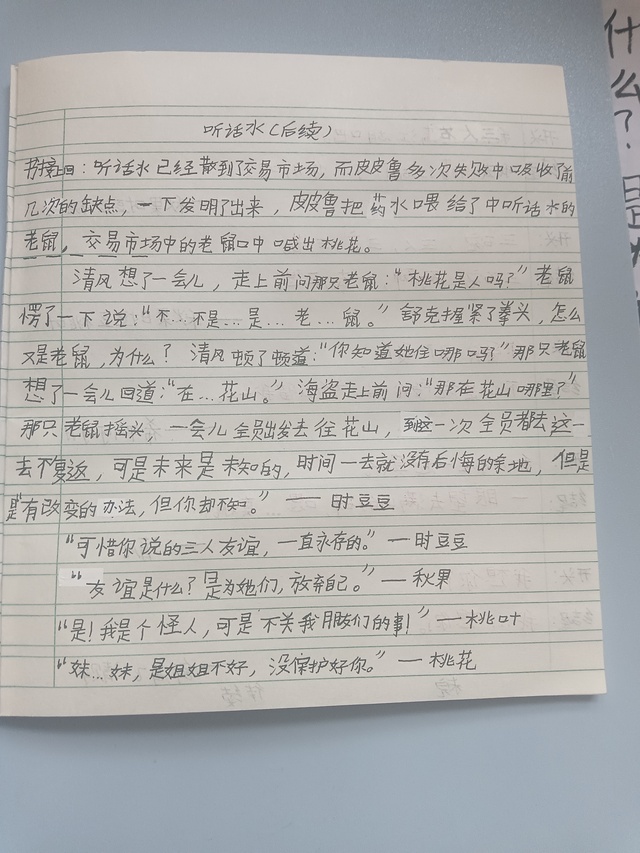 听话水(后续)
书接上回：听话水已经散到了交易市场，而皮皮鲁多次失败中吸收了前
几次的缺点，一下发明了出来，皮皮鲁把药水喂给了中听话水的
老鼠，交易市场中的老鼠口中喊出桃花。
清风想了一会儿，走上前问那只老鼠：“桃花是人吗？”老鼠
愣了一下说：“不…不是…是…老…鼠。”舒克握紧了拳头，怎么
又是老鼠，为什么？清风顿了顿道：“你知道她住哪吗？”那只老鼠
想了一会儿回道：“在…花山。”海盗走上前问：“那在花山哪里？”
那只老鼠摇头，一会儿全员出发去往花山，到这一次全员都去这一
去不复返，可是未来是未知的，时间一去就没有后悔的余地，但是
是“有改变的办法，但你却不知。”——时豆豆
“可惜你说的三人友谊，一直永存的。”—时豆豆
“友谊是什么？是为她们，放弃自己。”—秋果
“是！我是个怪人，可是不关我朋友们的事！”—桃叶
“妹…妹，是姐姐不好，没保护好你。”—桃花
什么？是